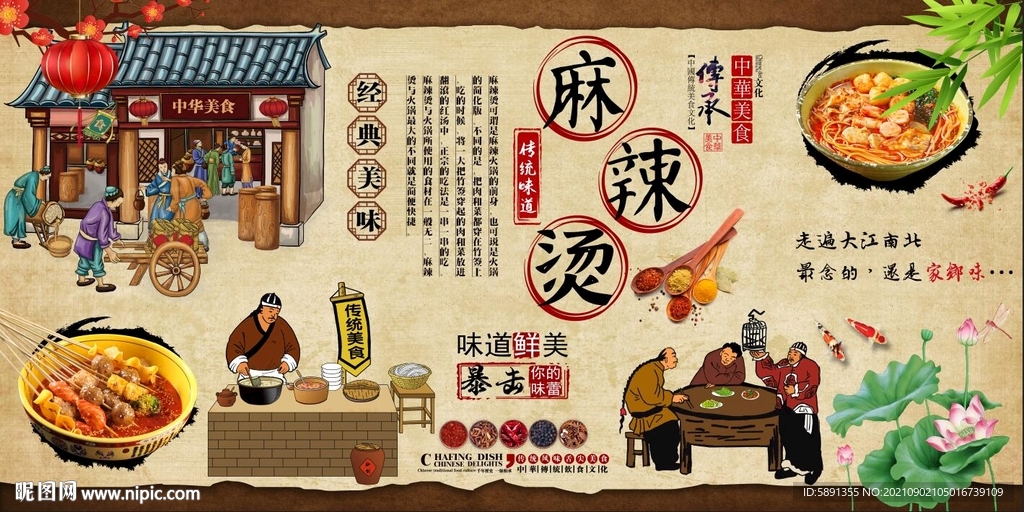 中华美食
经典美味
麻辣烫可谓是麻辣火锅的前身,也可说是火锅
的简化版,不同的是,把肉和菜都穿在竹签上
,吃的时候,将一大把竹签穿起的肉和菜放进
翻滚的红汤中。正宗的吃法是一串一串的吃。
麻辣烫与火锅所使用的食材在一般无二,麻辣
烫与火锅最大的不同就是简便快捷。
传统味道
麻
辣
烫
【中國傳統美食文化】
傳承
中華美食
文化
走遍大江南北
最念的,还是家鄉味···
传统美食
味道鲜美
暴击
你的
味蕾
CHAFING DISH
CHINESE DELIGHTS
传统风味舌尖美食
中華傳統飲食文化
昵图网 www.nipic.com
ID:5891355 NO:20210902105016739109